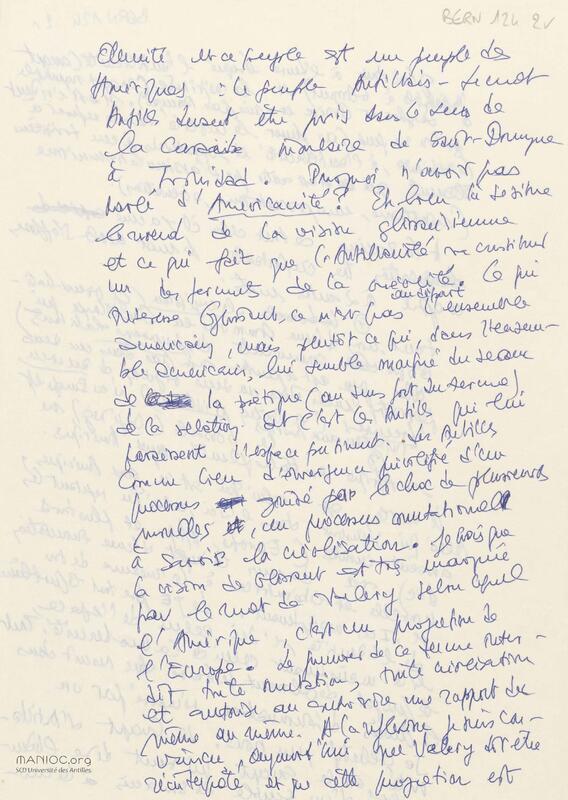 BERN 124 2v
Eternité et ce peuple est un peuple des
Amériques : le peuple Antillais -
Antilles devant être pris dans le sens de
la Caraïbe insulaire de Saint-Domingue
à Trinidad. Pourquoi n'avoir pas
parlé d'Américanité? Eh bien là
le nœud de la vision glissantienne
et ce qui fait que l'Antillanité va constituer
un des ferments de la créolité. Ce qui
intéresse Glissant, ce n'est pas au départ l'ensemble
américain, mais plutôt ce qui, dans l'ensem-
ble américain, lui semble marqué du sceau
de la poétique (au sens fort du terme)
de la relation. Or c'est les Antilles qui lui
paraissent l'espace pertinent. Les Antilles
comme lieu d'émergence privilégié d'un
processus généré par le choc de plusieurs
mondes, un processus mutationnel
à savoir la créolisation. Je crois que
la vision de Glissant est très marquée
par le mot de Valéry selon lequel
l'Amérique, c'est une projection de
l'Europe. Le premier de ce terme inter-
dit toute mutation, toute créolisation
et autorise au contraire un rapport du
même au même. A la réflexion, je suis con-
vaincu aujourd'hui que Valéry doit être
réinterprété et que cette projection est
MANIOC.org
SCD Université des Antilles